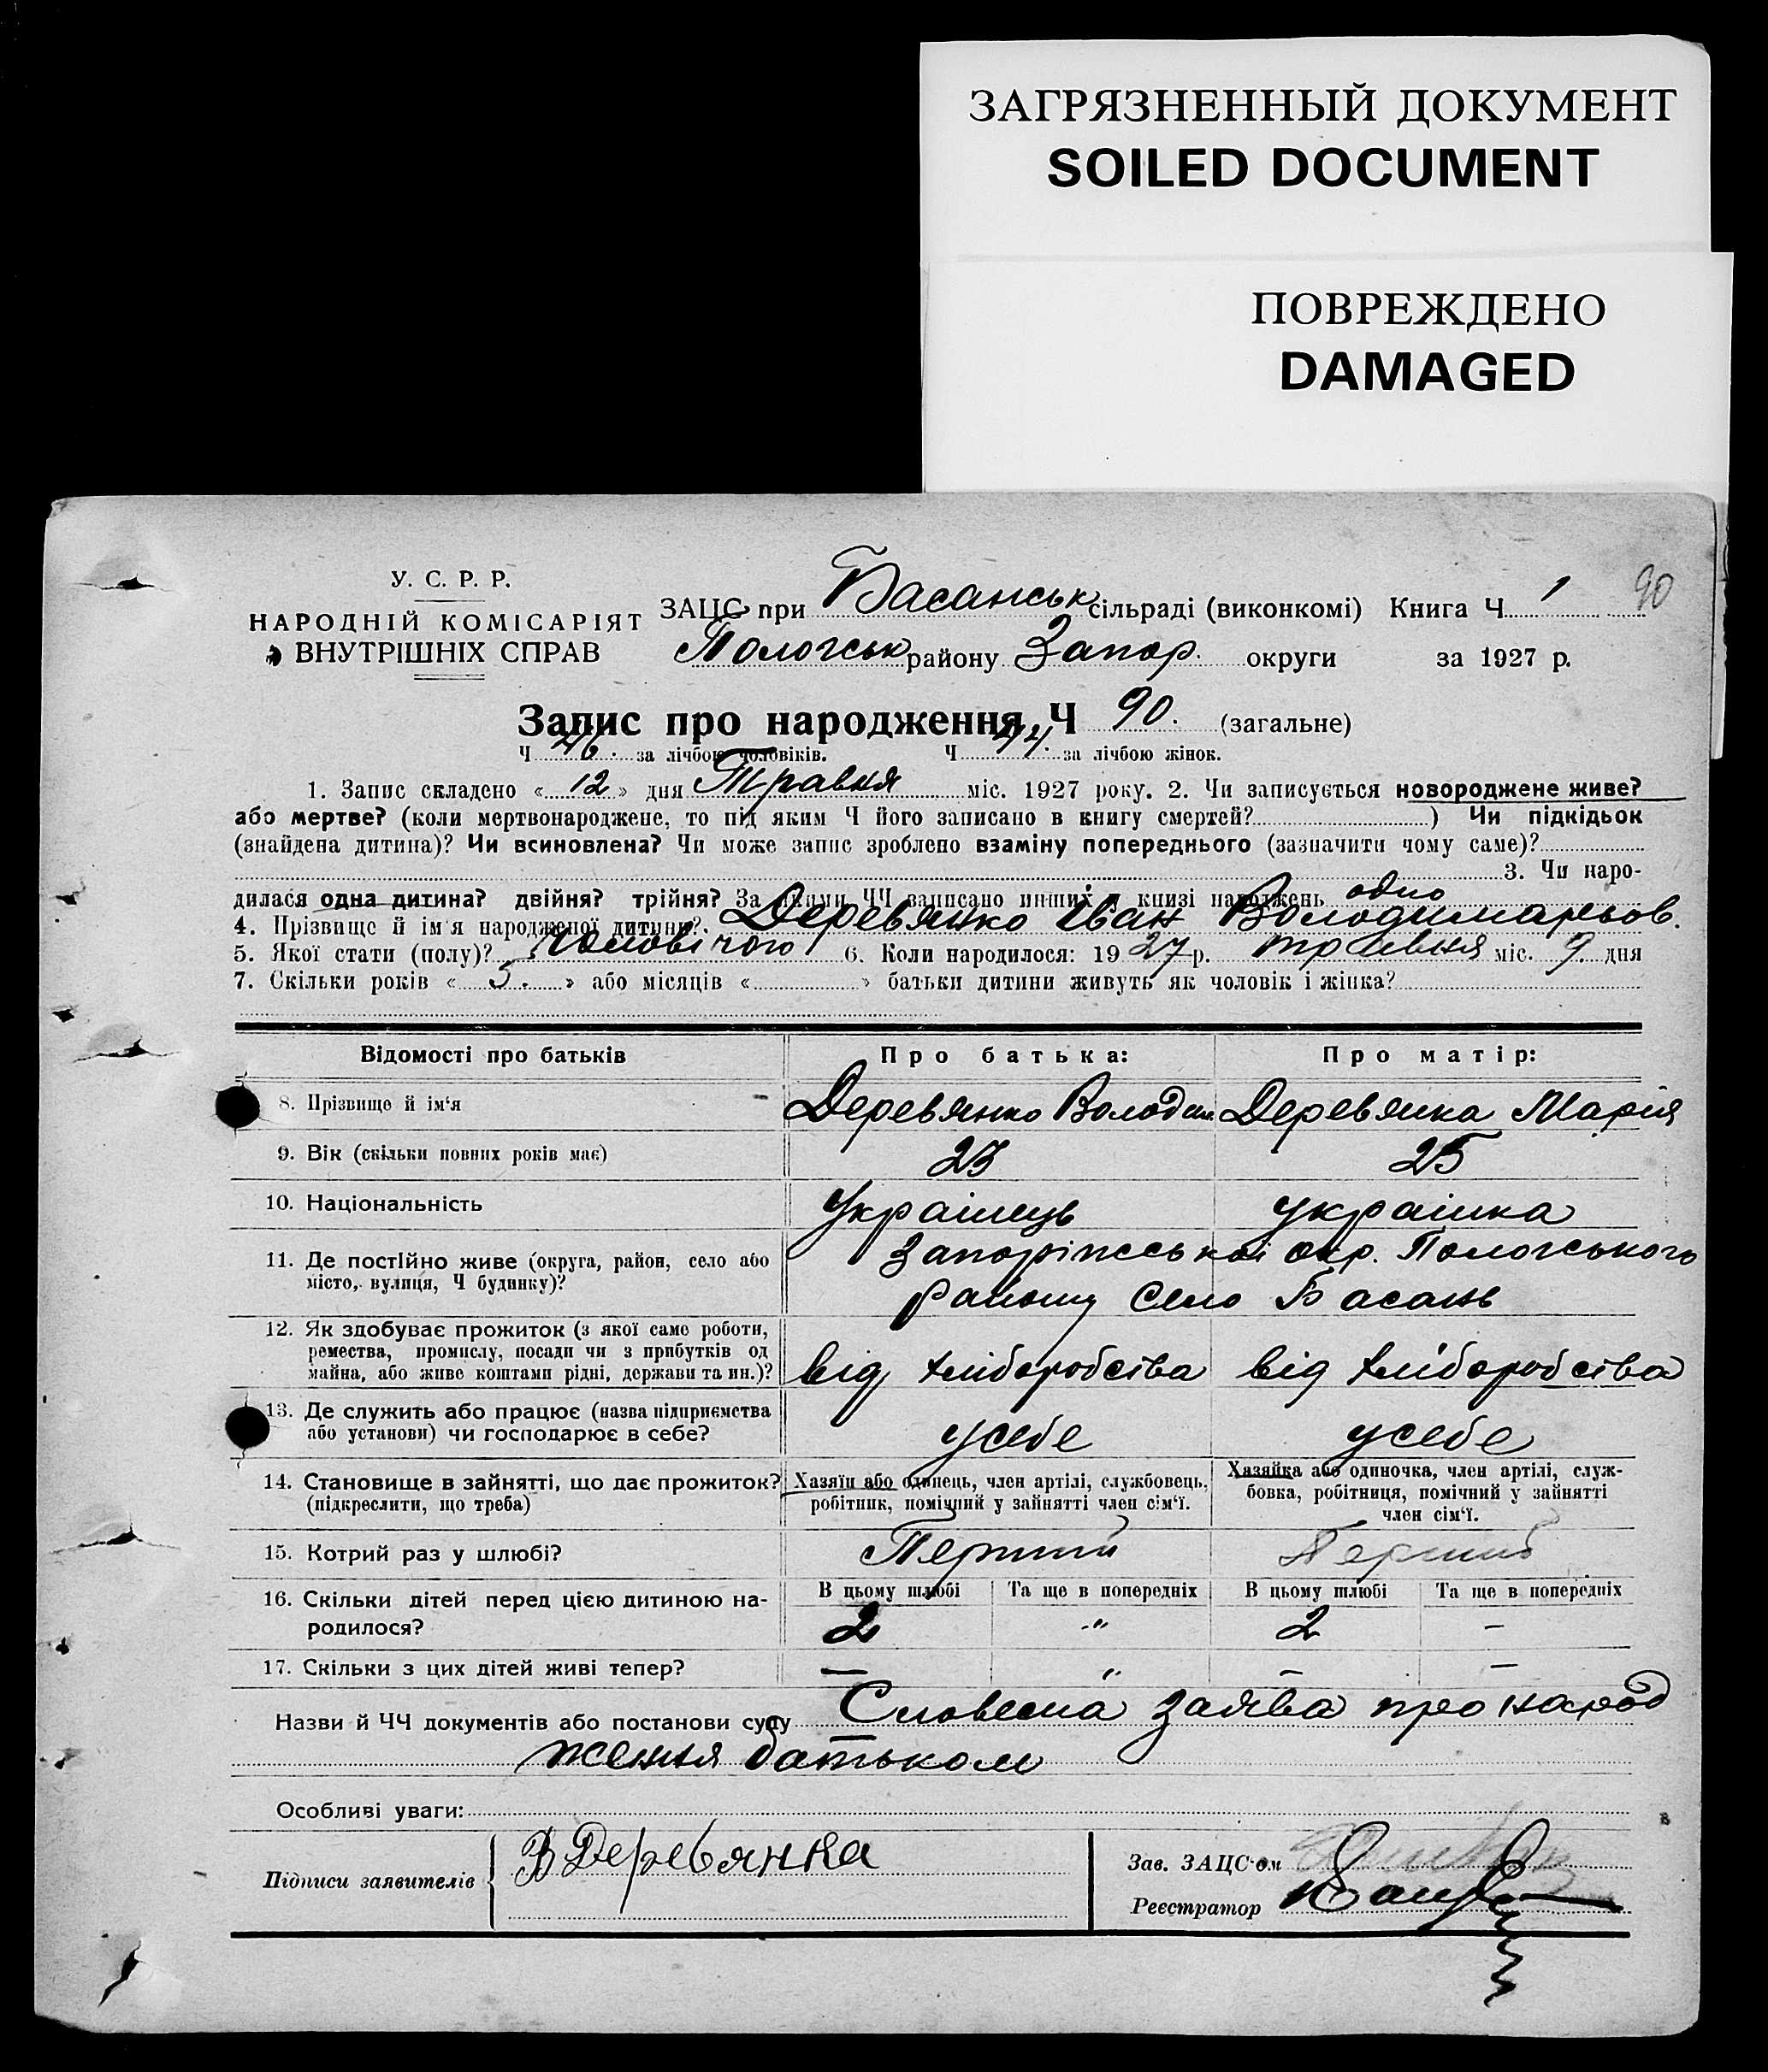 ЗАГРЯЗНЕННЫЙ ДОКУМЕНТ
SOILED DOCUMENT
ПОВРЕЖДЕНО
DAMAGED
90
У. С. Р. Р.
НАРОДНІЙ КОМІСАРІЯТ
ВНУТРІШНІХ СПРАВ
ЗАЦС при Басанськ сільраді (виконкомі) Книга Ч 1
Пологськ району Запор. округи за 1927 р.
Запис про народження Ч 90. (загальне)
Ч 46. за лічбою чоловіків. Ч 44. за лічбою жінок.
1. Запис складено « 12 » дня Травня міс. 1927 року. 2. Чи записується новороджене живе?
або мертве? (коли мертвонароджене, то під яким Ч його записано в книгу смертей? ) Чи підкідьок
(знайдена дитина)? Чи всиновлена? Чи може запис зроблено взаміну попереднього (зазначити чому саме)?
3. Чи наро-
дилася одна дитина? двійня? трійня? За якими ЧЧ записано инших в книзі народжень одно
4. Прізвище й ім'я народженої дитини? Деревянко Іван Володимарьов.
5. Якої стати (полу)? Чоловічого 6. Коли народилося: 1927 р. травня міс. 9 дня
7. Скільки років « 5. » або місяців « » батьки дитини живуть як чоловік і жінка?
Відомості про батьків Про батька: Про матір:
8. Прізвище й ім'я Деревянко Володим Деревянка Марія
9. Вік (скільки повних років має) 23 25
10. Національність Українець українка
11. Де постійно живе (округа, район, село або Запоріжської окр. Пологського
місто, вулиця, Ч будинку)? району село Басань
12. Як здобуває прожиток (з якої саме роботи,
ремества, промислу, посади чи з прибутків од
майна, або живе коштами рідні, держави та ин.)? від хліборобства від хліборобства
13. Де служить або працює (назва підприємства
або установи) чи господарює в себе? усебе усебе
14. Становище в зайнятті, що дає прожиток? Хазяїн або одинець, член артілі, службовець, Хазяйка або одиночка, член артілі, служ-
(підкреслити, що треба) робітник, помічний у зайнятті член сім'ї. бовка, робітниця, помічний у зайнятті
член сім'ї.
15. Котрий раз у шлюбі? Перший Перший
В цьому шлюбі Та ще в попередніх В цьому шлюбі Та ще в попередніх
16. Скільки дітей перед цією дитиною на-
родилося? 2 -"- 2 –
17. Скільки з цих дітей живі тепер? — " – –
Назви й ЧЧ документів або постанови суду Словесна заява про народ
ження батьком
Особливі уваги:
Підписи заявителів В Деревянка
Зав. ЗАЦС'ом
Реєстратор